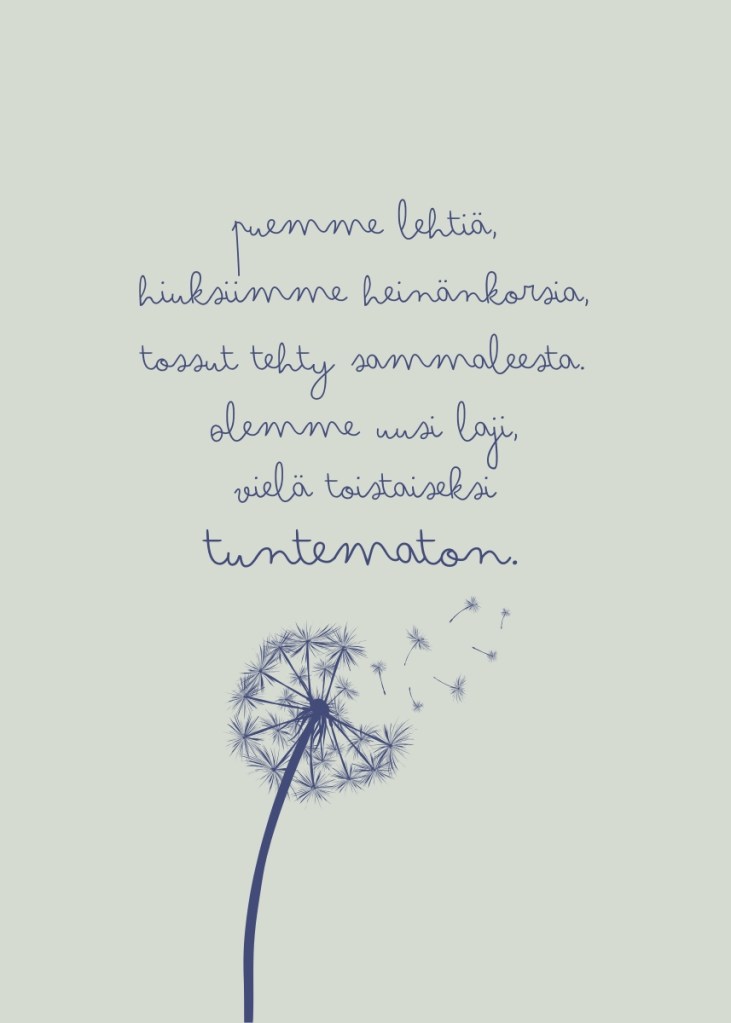 puemme lehtiä,
hiuksiimme heinänkorsia,
tossut tehty sammaleesta.
olemme uusi laji,
vielä toistaiseksi
tuntematon.